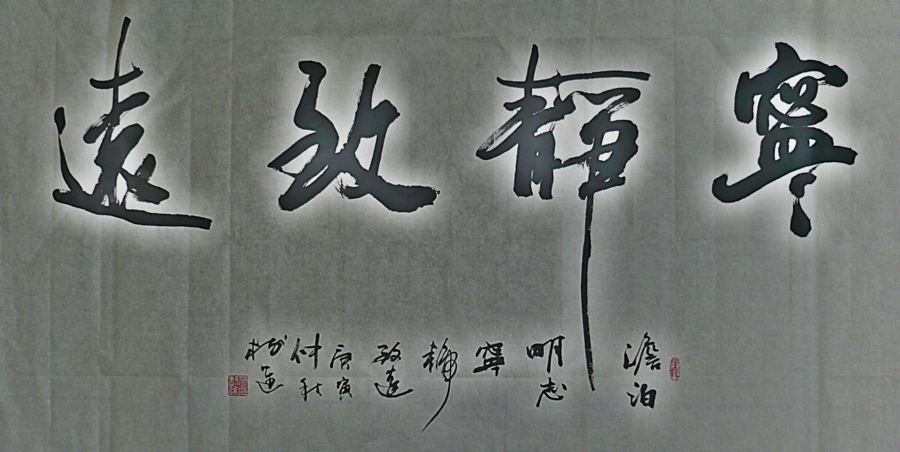 寧靜致遠
澹泊明志寧靜致遠庚寅仲秋